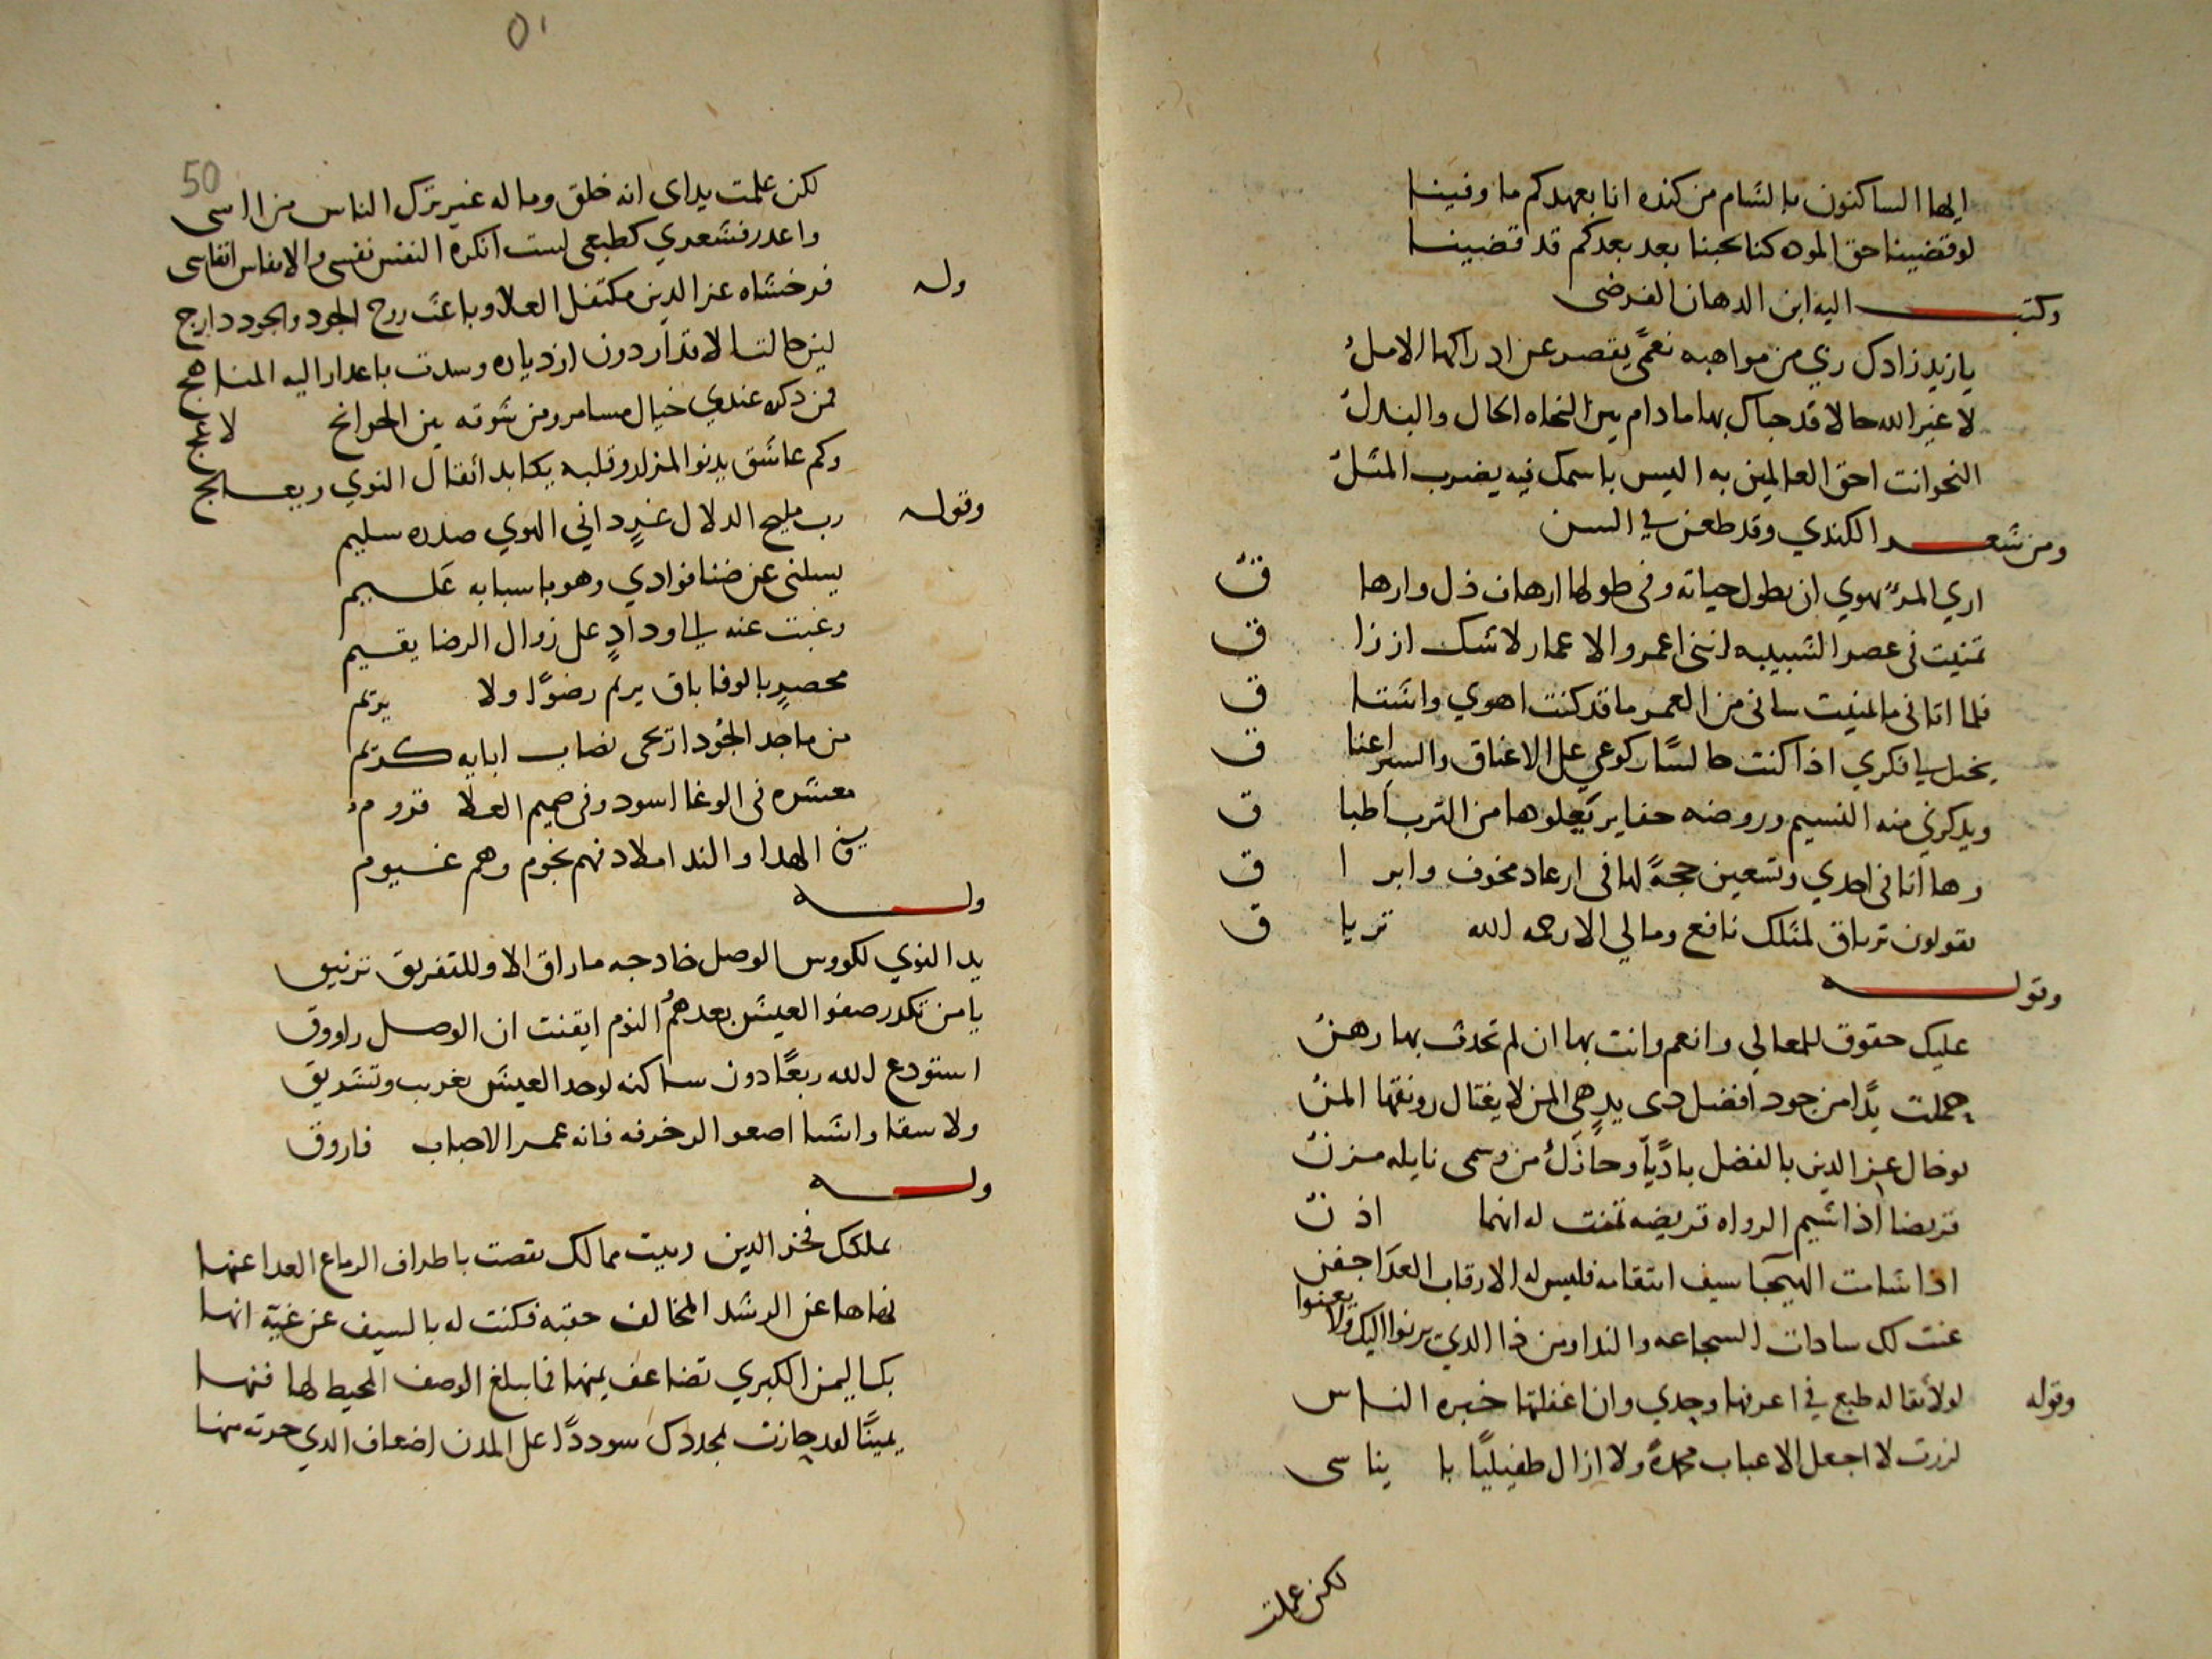 ايها الساكنون بالشام من كنده انا بعهدكم ما وفينا
لو قضينا حق الموده كنا نحبنا بعد بعدكم قد قضينا
وكتب اليه ابن الدهان الفرضى
يا زيد زادك ربي من مواهبه نعمًى يقصر عن ادراكها الامل
لا غير الله حالا قد حباك بها ما دام بين النحاه الحال والبدل
النحو انت احق العالمين به اليس باسمك فيه يضرب المثل
ومن شعر الكندي وقد طعن في السن
اري المرء يهوي ان يطول حياته وفى طولها ارهاف ذل وارها ق
تمنيت فى عصر الشبيبه اننى اعمر والاعمار لا شك ارزا ق
فلما اتانى ما تمنيت سانى من العمر ما قد كنت اهوي واشتا ق
يخيل لي فكري اذا كنت جالسًا ركوعي على الاعناق والسير اعنا ق
ويذكرني منه النسيم وروضه حفاير يعلوها من الترب اطبا ق
وها انا فى احدي وتسعين حجةً لها فى ارعاد مخوف وابر ا ق
يقولون ترياق لمثلك نافع ومالي الا رحمه الله تريا ق
وقوله
عليك حقوق للمعالي وانعم وانت بها ان لم تحدث بها رهن
حملت يدًا من جود افضل ذى يدٍ هي المن لا يغتال رونقها المن
نوخال عز الدين بالفضل باديًا وحاز لك من وسمى نايله مزن
قريضا اذا شيم الرواه قريضه تمنت له انها اذن
اذا شامت الهيجا سيف انتقامه فليس له الا رقاب العدا جفن
عنت لك سادات الشجاعه والندا ومن ذا الذي يرنوا اليك ولا يعنوا
وقوله لولا مقاله طبع في اعرفها وجدي وان اغفلتها خبره الناس
لزرت لا اجعل الاعباب محمدةً ولا ازال طفيليًا با يناسى
لكن علمت
٥١
50
لكن علمت بداى انه خلق وما له غير ترك الناس من اسى
واعدر فشعري كطبعى لست انكره النفس نفسى والانفاس انفاسى
وله فرخشاه عز الدين مكتفل العلا وباعث روح الجود والجود دارج
لين حالت الاقدار دون ازدياره وسدت باعدار اليه المناهج
فمن ذكره عندي خيال مسامر ومن شوقه بين الجوانح لاعج
وكم عاشق يدنوا المزار وقلبه يكابد اثقال النوي ويعالج
وقوله رب مليح الدلال غيرٍ داني الهوي صدره سليم
يسلنى عن ضنا فوادي وهو باسبابه عليم
وغبت عنه لي ودادٍ على زوال الرضا يقيم
محصيرٍ بالوفا باق يريم رضوًا ولا يريم
من ماجد الجُود اريحى نصاب ابايه كريم
معشره فى الوغا اسود وفى صميم العلا قروم
بين الهدا والندا املاد فهم نجوم وهم غيوم
وله
يد النوي لكووس الوصل خادجه ما راق الا وللتفريق ترنيق
يا من تكدر صفو العيش بعدهمُ اليوم ايقنت ان الوصل راووق
استودع الله ربعًا دون ساكنه لوحد العيش يغرب وتشريق
ولا سقا واشيا اصغوا لزخرفه فانه عمر الاحباب فاروق
وله
بملكك فخر الدين ربيت ممالك تقصت باطراف الرماع العدا عنها
نهاها عن الرشد المخالف حقبه فكنت له بالسيف عن غيّه انها
بك اليمن الكبري تضاعف يمنها فما يبلغ الوصف المحيط لها فنها
يمينًا لقد جازت لمجدك سوددًا على المدن اضعاف الذي حزته منها